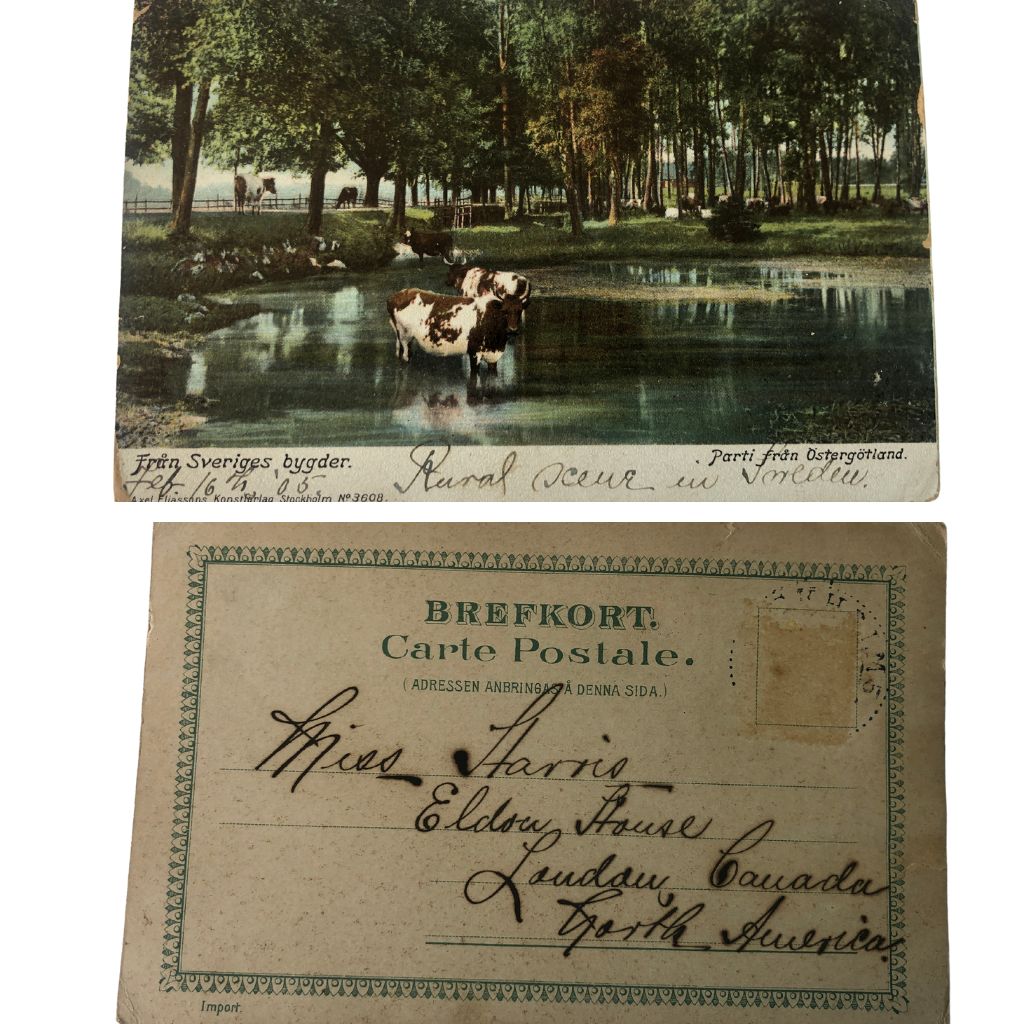 Från Sveriges bygder. Parti från Östergötland.
Feb 16th, '05. Rural scene in Sweden.
Axel Eliassons Konstförlag Stockholm No 3608.
BREFKORT.
Carte Postale.
(ADRESSEN ANBRINGAS Å DENNA SIDA.)
Miss Harris
Eldon House
London, Canada
North America
Import.